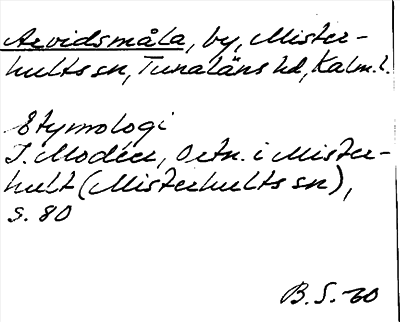 Arvidsmåla, by, Mister-
hults sn, Tunaläns hd, Kalm. l.
Etymologi
I. Modéer, Ortn. i Mister-
hult (Misterhults sn),
s. 80
B. S. 70